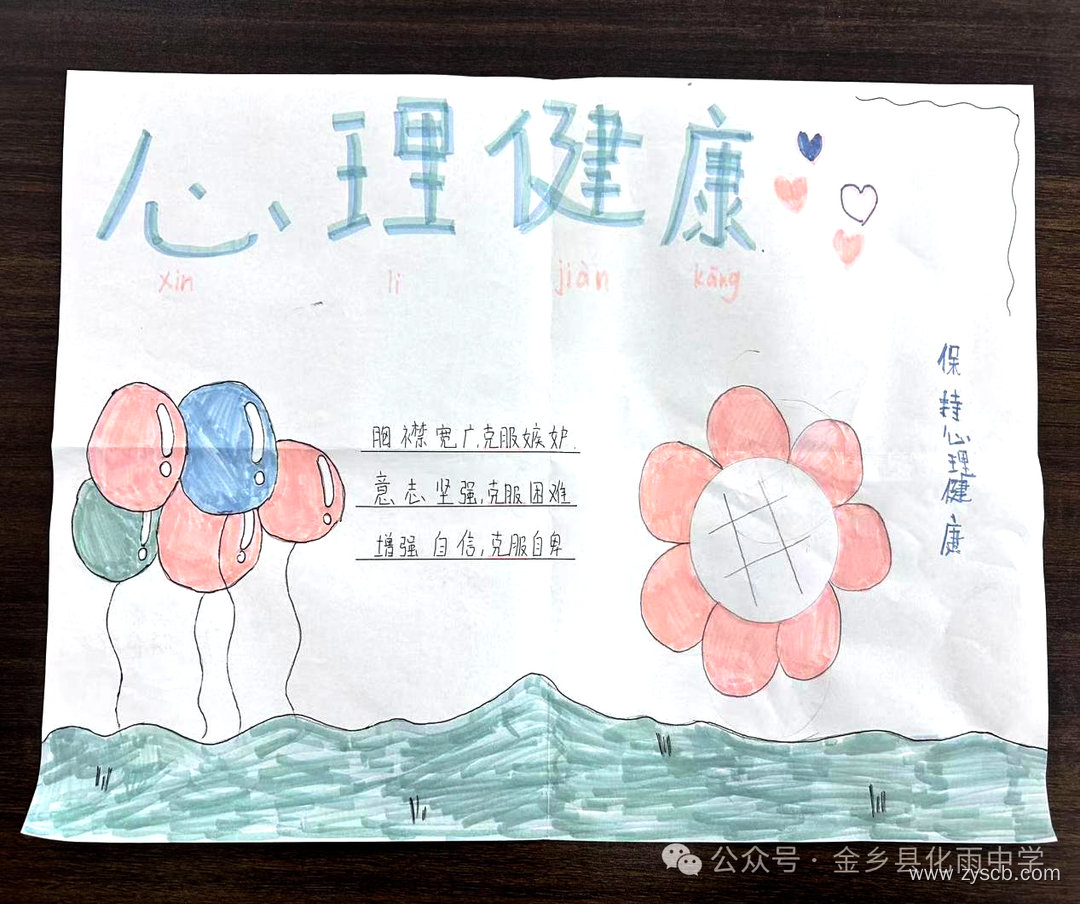 心理健康
xin li jiàn kāng
胸襟宽广,克服嫉妒.
意志坚强,克服困难
增强自信,克服自卑
保持心理健康
公众号·金乡县化雨中学
www.zyscb.com